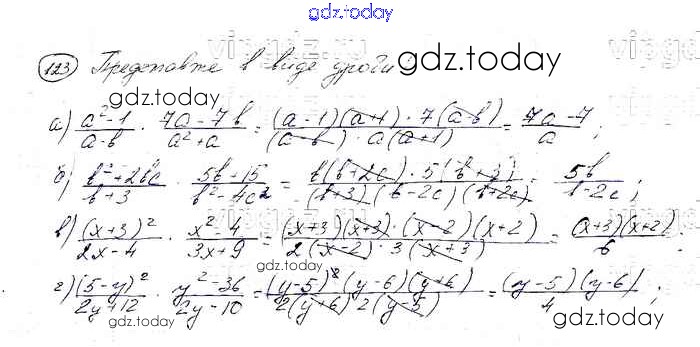 gdz.today
123 Представте в виде дроби gdz.today
gdz.today
а) (a²-1)/(a-b) · (7a-7b)/(a²+a) = ((a-1)(a+1)·7(a-b))/((a-b)·a(a+1)) = (7a-7)/a ;
б) (b²+2bc)/(b+3) · (5b+15)/(b²-4c²) = (b(b+2c)·5(b+3))/((b+3)(b-2c)(b+2c)) = 5b/(b-2c) ;
в) (x+3)²/(2x-4) · (x²-4)/(3x+9) = ((x+3)(x+3)·(x-2)(x+2))/(2(x-2)·3(x+3)) = (x+3)(x+2)/6
gdz.today
г) (5-y)²/(2y+12) · (y²-36)/(2y-10) = ((y-5)²(y-6)(y+6))/(2(y+6)2(y-5)) = (y-5)(y-6)/4 ;
gdz.today
gdz.today